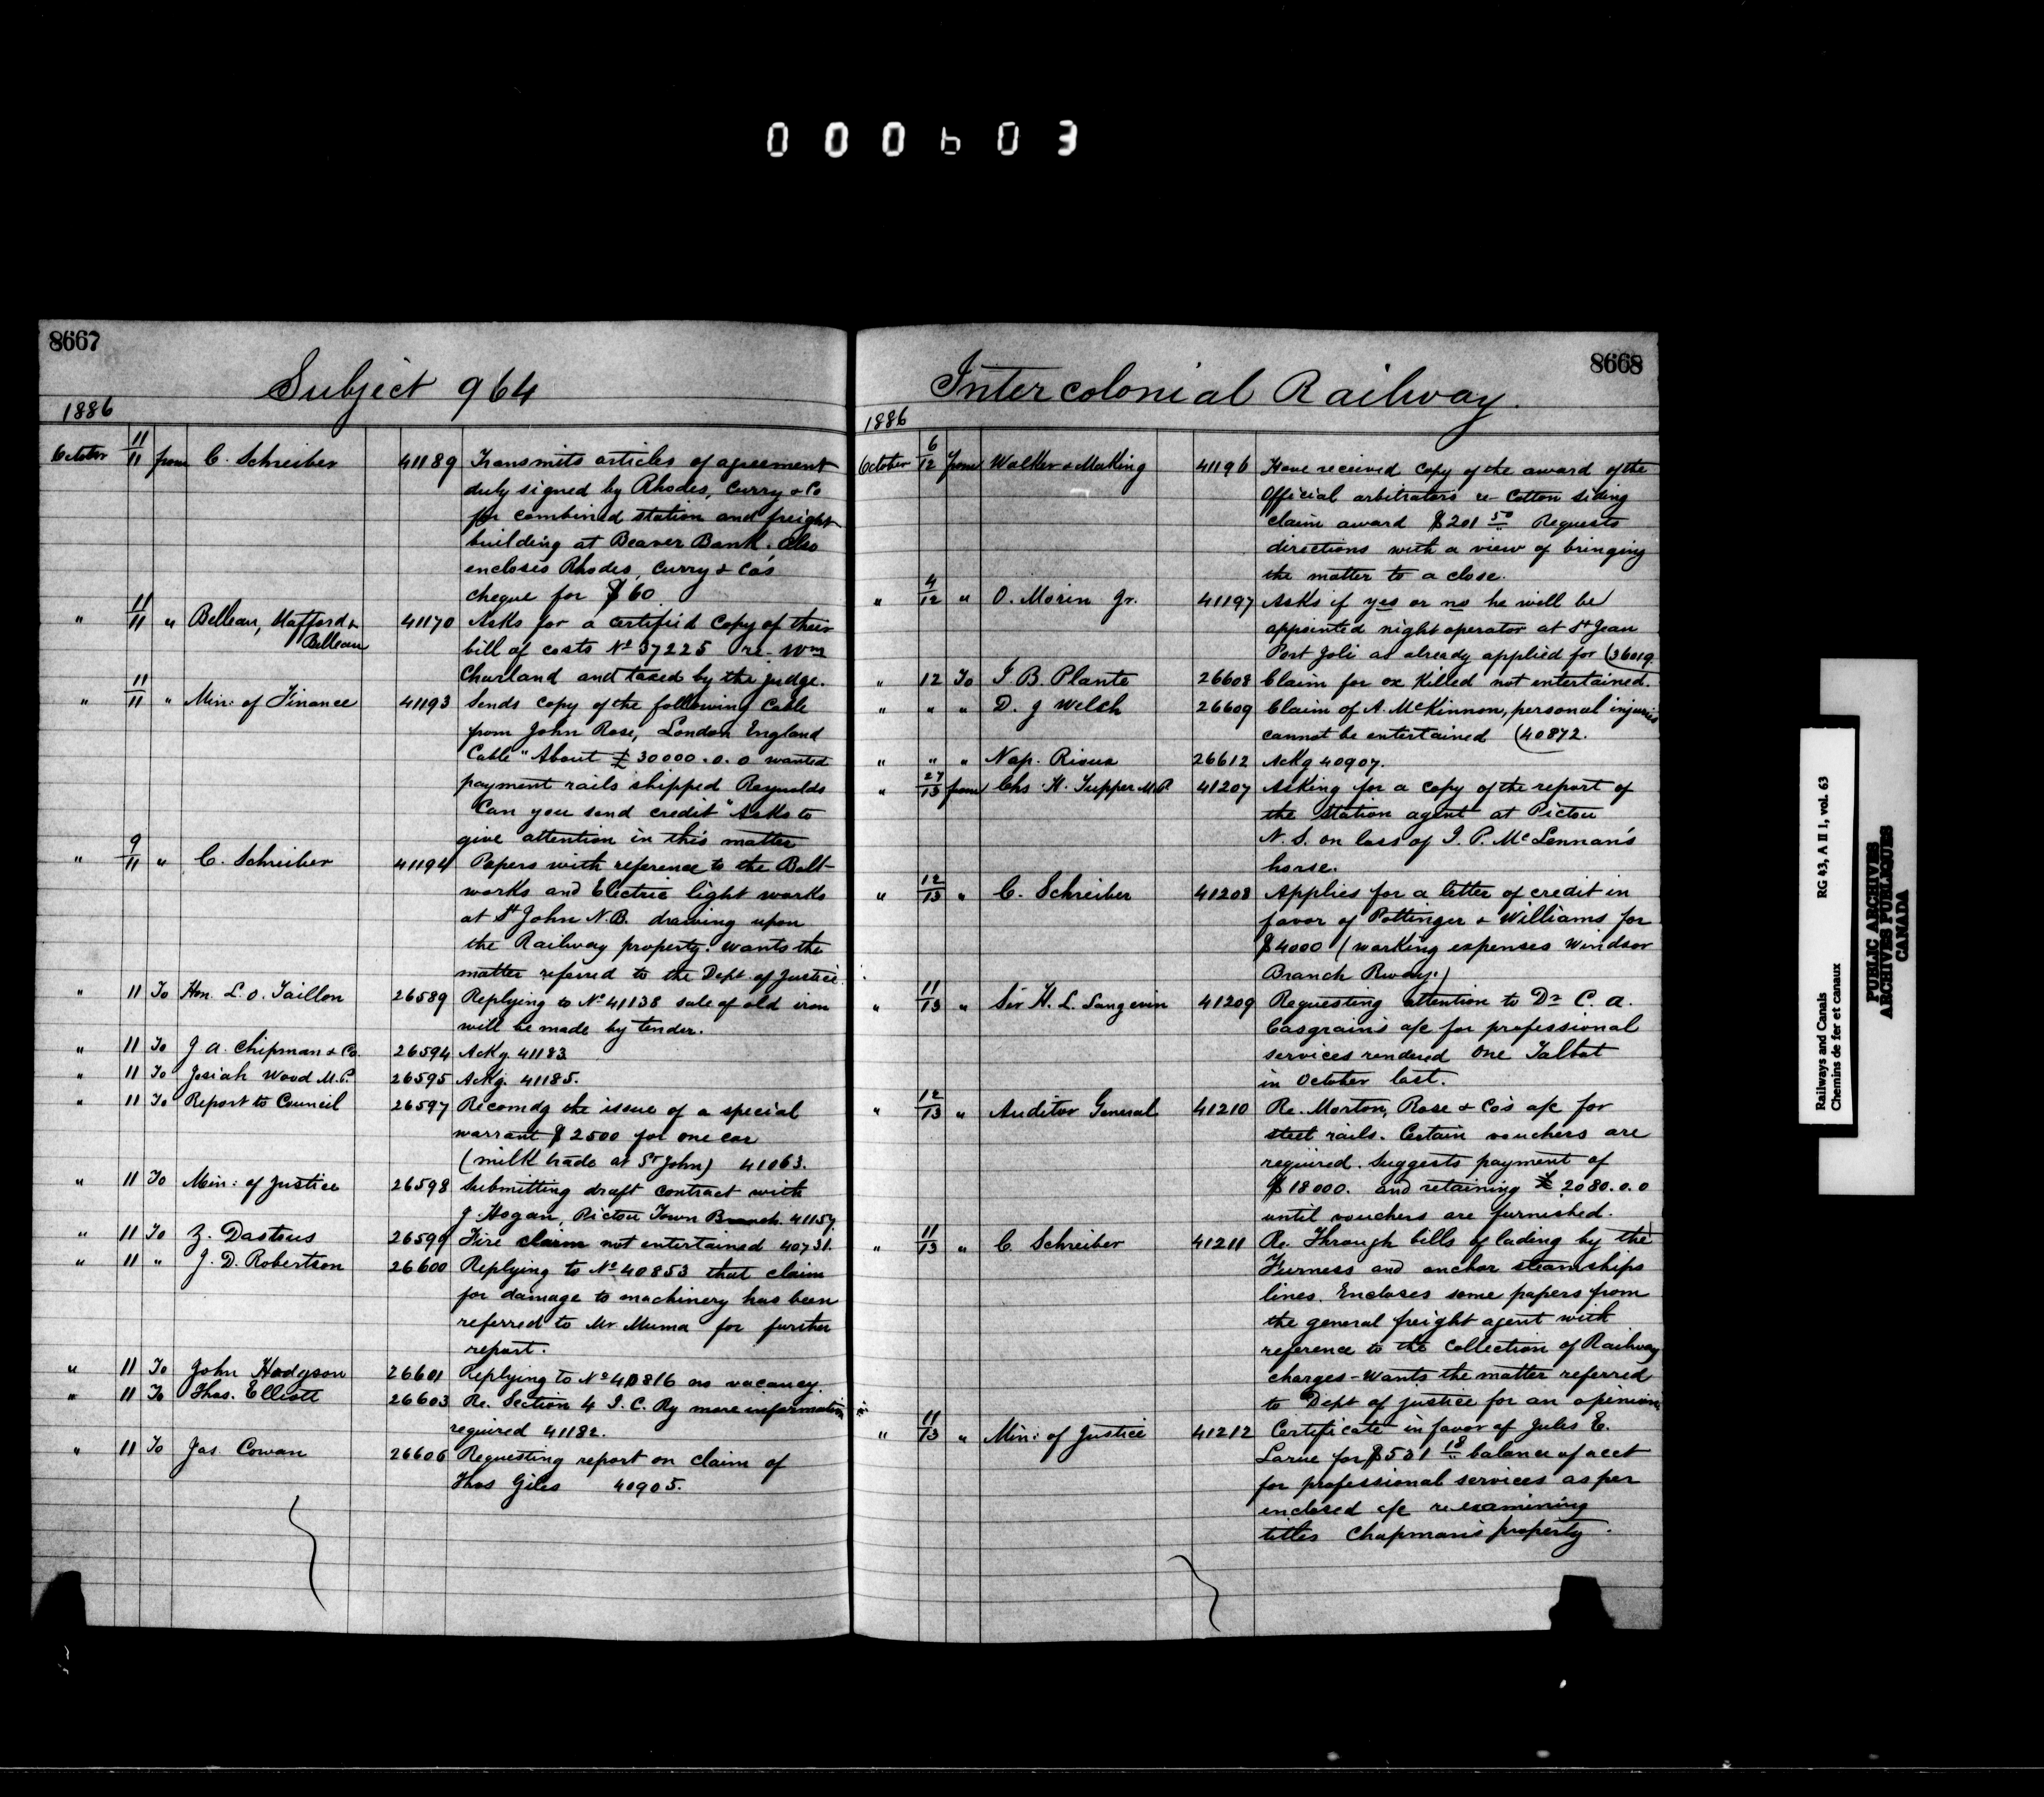 000603
8667
Subject 964
1886
October 11/11 from C. Schreiber 41189 Transmits articles of agreement
duly signed by Rhodes, Curry & Co
for combined station and freight
building at Beaver Bank. also
encloses Rhodes, Curry & Co's
cheque for $60
" 11/11 " Belleau, Stafford & Belleau 41170 Asks for a certified copy of their
bill of costs No 37225 re- Wm
Charland and taxed by the judge.
" 11/11 " Min: of Finance 41193 Sends copy of the following Cable
from John Rose, London England
Cable "About £30000.0.0 wanted
payment rails shipped Reynolds
Can you send credit" Asks to
give attention in this matter
" 9/11 " C. Schreiber 41194 Papers with reference to the Bolt-
works and Electric light works
at St John N.B. drawing upon
the Railway property. wants the
matter referred to the Dept. of Justice.
" 11 To Hon. L. O. Taillon 26589 Replying to No 41138 sale of old iron
will be made by tender.
" 11 To J A. Chipman & Co. 26594 Ackg. 41183
" 11 To Josiah Wood M.P. 26595 Ackg. 41185.
" 11 To Report to Council 26597 Recomdg the issue of a special
warrant $2500 for one car
(milk trade at St John) 41063.
" 11 To Min: of Justice 26598 Submitting draft contract with
J. Hogan, Pictou Town Branch. 41157.
" 11 To Z. Dastous 26599 Fire claim not entertained 40731.
" 11 " J. D. Robertson 26600 Replying to No 40853 that claim
for damage to machinery has been
referred to Mr. Muma for further
report.
" 11 To John Hodgson 26601 Replying to No 40816 no vacancy.
" 11 To Thos. Elliott 26603 Re. Section 4 I. C. Ry more information
required 41182.
" 11 To Jas Cowan 26606 Requesting report on claim of
Thos Giles 40905.
8668
Intercolonial Railway.
1886
October 6/12 from Walker & Making 41196 Have received copy of the award of the
Official arbitrators re- Cotton siding
claim award $201 50 Requests
directions with a view of bringing
the matter to a close.
" 4/12 " O. Morin Jr. 41197 Asks if yes or no he will be
appointed night operator at St Jean
Port Joli as already applied for (36019.
" 12 To J. B. Plante 26608 Claim for ox killed not entertained.
" " " D. J Welch 26609 Claim of A. McKinnon, personal injuries
cannot be entertained (40872.
" " " Nap. Rioux 26612 Ackg 40907.
" 27/13 from Chs. H. Tupper M.P. 41207 Asking for a copy of the report of
the station agent at Pictou
N. S. on loss of J. P. McLennan's
horse.
" 12/13 " C. Schreiber 41208 Applies for a letter of credit in
favor of Pottinger & Williams for
$4000 (working expenses Windsor
Branch Rway.)
" 11/13 " Sir H. L. Langevin 41209 Requesting attention to Dr C. A.
Casgrain's a/c for professional
services rendered one Talbot
in October last.
" 12/13 " Auditor General 41210 Re. Morton, Rose & Co's a/c for
steel rails. Certain vouchers are
required. Suggests payment of
$18000. and retaining £2080.0.0
until vouchers are furnished.
" 11/13 " C. Schreiber 41211 Re. Through bills of lading by the
Furness and anchor steamships
lines. Encloses some papers from
the general freight agent with
reference to the collection of Railway
charges - wants the matter referred
to Dept of justice for an opinion.
" 11/13 " Min: of Justice 41212 Certificate in favor of Jules E.
Larue for $531 18 balance of acct
for professional services as per
enclosed a/c re examining
titles Chapman's property.
Railways and Canals RG 43, A II 1, vol. 63
Chemins de fer et canaux
PUBLIC ARCHIVES
ARCHIVES PUBLIQUES
CANADA